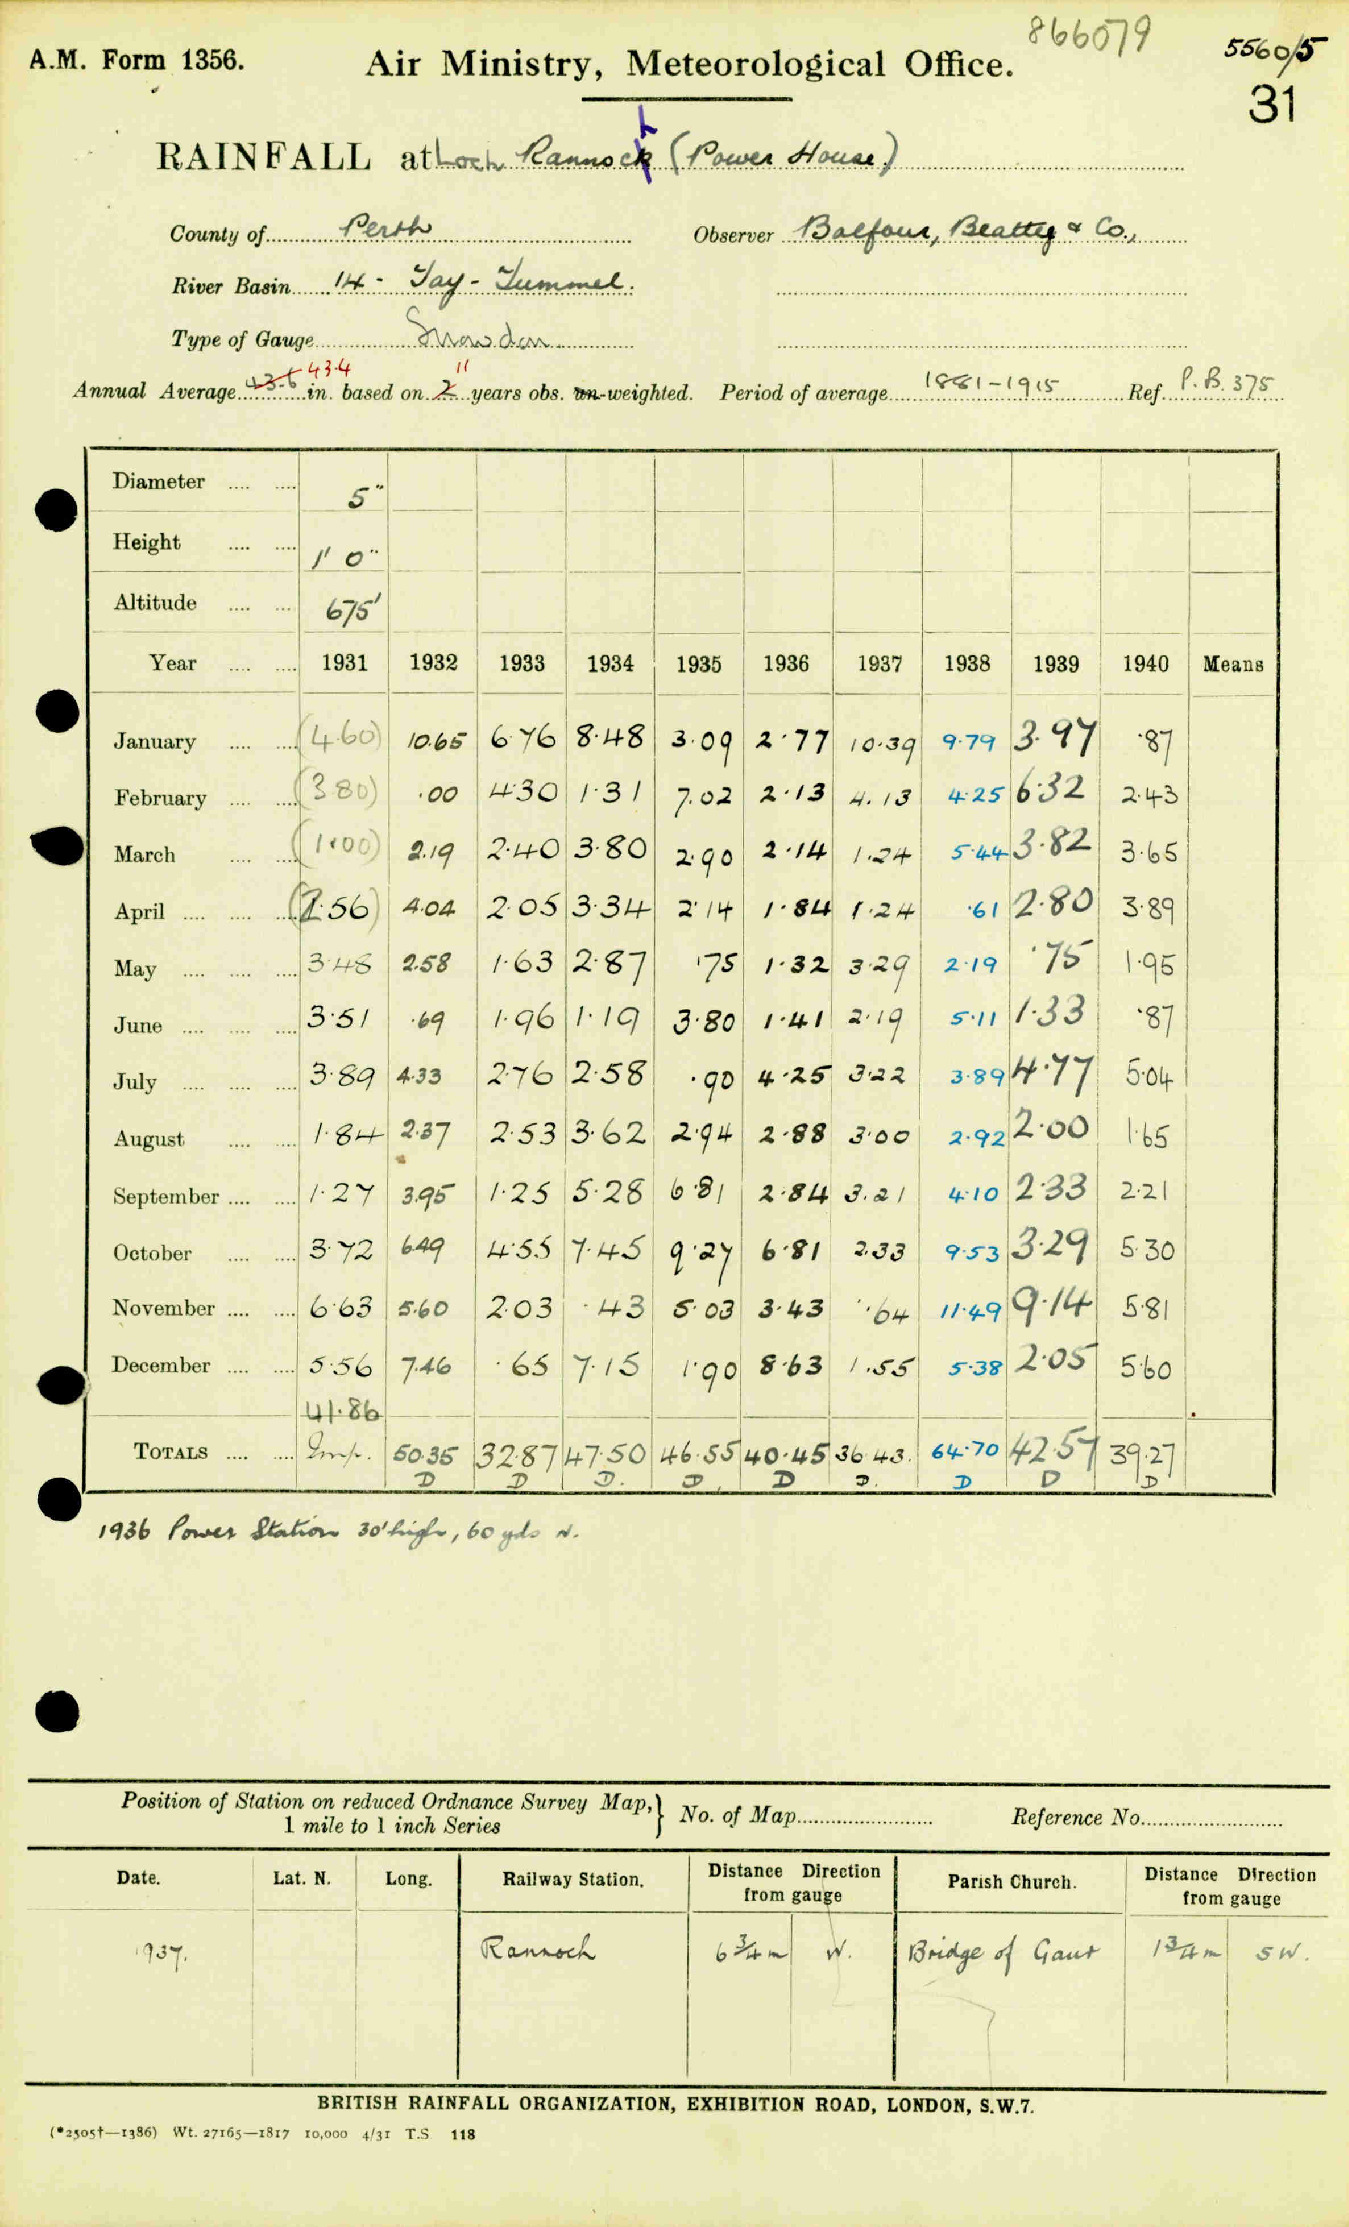 866079
5560/5
A.M. Form 1356. Air Ministry, Meteorological Office.
31
RAINFALL at Loch Rannoch (Power House)
County of Perth Observer Balfour, Beatty & Co.,
River Basin 14 - Tay - Tummel.
Type of Gauge Snowdon
43.4 11
Annual Average 43.6 in. based on 2 years obs. un-weighted. Period of average 1881-1915 Ref. P.B. 375
Diameter .... .... 5"
Height .... .... 1' 0"
Altitude .... .... 675'
Year .... .... 1931 1932 1933 1934 1935 1936 1937 1938 1939 1940 Means
January .... .... (4.60) 10.65 6.76 8.48 3.09 2.77 10.39 9.79 3.97 .87
February .... .... (3.80) .00 4.30 1.31 7.02 2.13 4.13 4.25 6.32 2.43
March .... .... (1.00) 2.19 2.40 3.80 2.90 2.14 1.24 5.44 3.82 3.65
April .... .... .... (2.56) 4.04 2.05 3.34 2.14 1.84 1.24 .61 2.80 3.89
May .... .... .... 3.48 2.58 1.63 2.87 .75 1.32 3.29 2.19 .75 1.95
June .... .... .... 3.51 .69 1.96 1.19 3.80 1.41 2.19 5.11 1.33 .87
July .... .... .... 3.89 4.33 2.76 2.58 .90 4.25 3.22 3.89 4.77 5.04
August .... .... 1.84 2.37 2.53 3.62 2.94 2.88 3.00 2.92 2.00 1.65
September .... .... 1.27 3.95 1.25 5.28 6.81 2.84 3.21 4.10 2.33 2.21
October .... .... 3.72 6.49 4.55 7.45 9.27 6.81 2.33 9.53 3.29 5.30
November .... .... 6.63 5.60 2.03 .43 5.03 3.43 .64 11.49 9.14 5.81
December .... .... 5.56 7.46 .65 7.15 1.90 8.63 1.55 5.38 2.05 5.60
41.86
TOTALS .... .... Imp. 50.35 32.87 47.50 46.55 40.45 36.43. 64.70 42.57 39.27
D D D. D. D D. D D D
1936 Power Station 30' high, 60 yds N.
Position of Station on reduced Ordnance Survey Map,} No. of Map Reference No.
1 mile to 1 inch Series
Date. Lat. N. Long. Railway Station. Distance Direction from gauge Parish Church. Distance Direction from gauge
1937. Rannoch 6 3/4 m W. Bridge of Gaur 1 3/4 m SW.
BRITISH RAINFALL ORGANIZATION, EXHIBITION ROAD, LONDON, S.W.7.
(*2505†—1386) Wt. 27165—1817 10,000 4/31 T.S 118